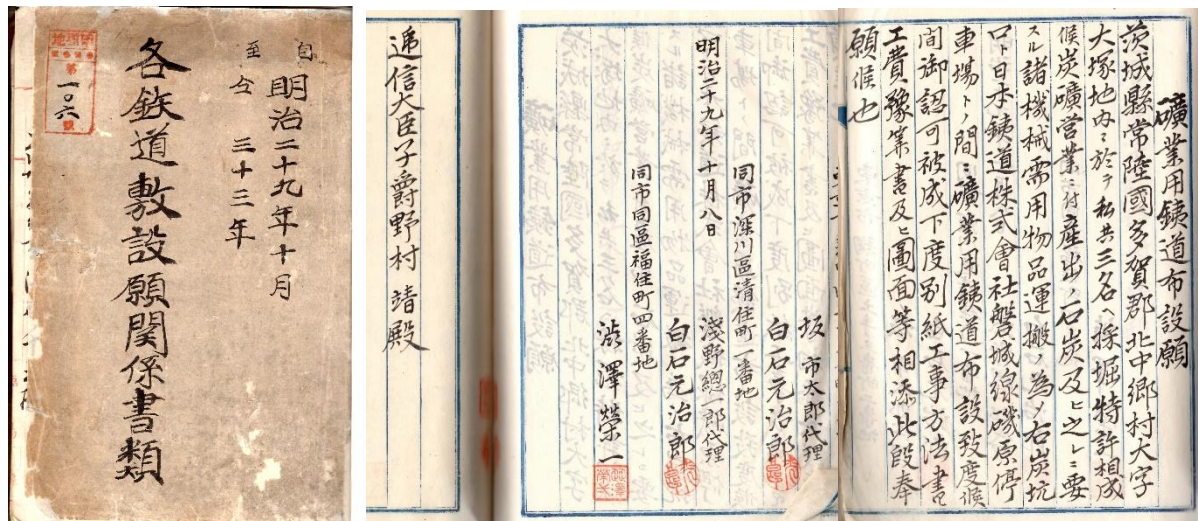 自 明治二十九年十月
至 仝 三十三年
各鉄道敷設願関係書類
第一〇六號
礦業用鉄道布設願
茨城縣常陸國多賀郡北中郷村大字
大塚地内ニ於テ私共三名ヘ採堀特許相成
候炭礦営業ニ付産出ノ石炭及ヒ之レニ要
スル諸機械需用物品運搬ノ為メ右炭坑
口ト日本鉄道株式會社磐城線磯原停
車場トノ間ニ礦業用鉄道布設致度候
間御認可被成下度別紙工事方法書
工費豫算書及ヒ圖面等相添此段奉
願候也
坂市太郎代理
白石元治郎
同市深川區清住町一番地
淺野總一郎代理
白石元治郎
同市同區福住町四番地
澁澤榮一
明治二十九年十月八日
逓信大臣子爵野村靖殿